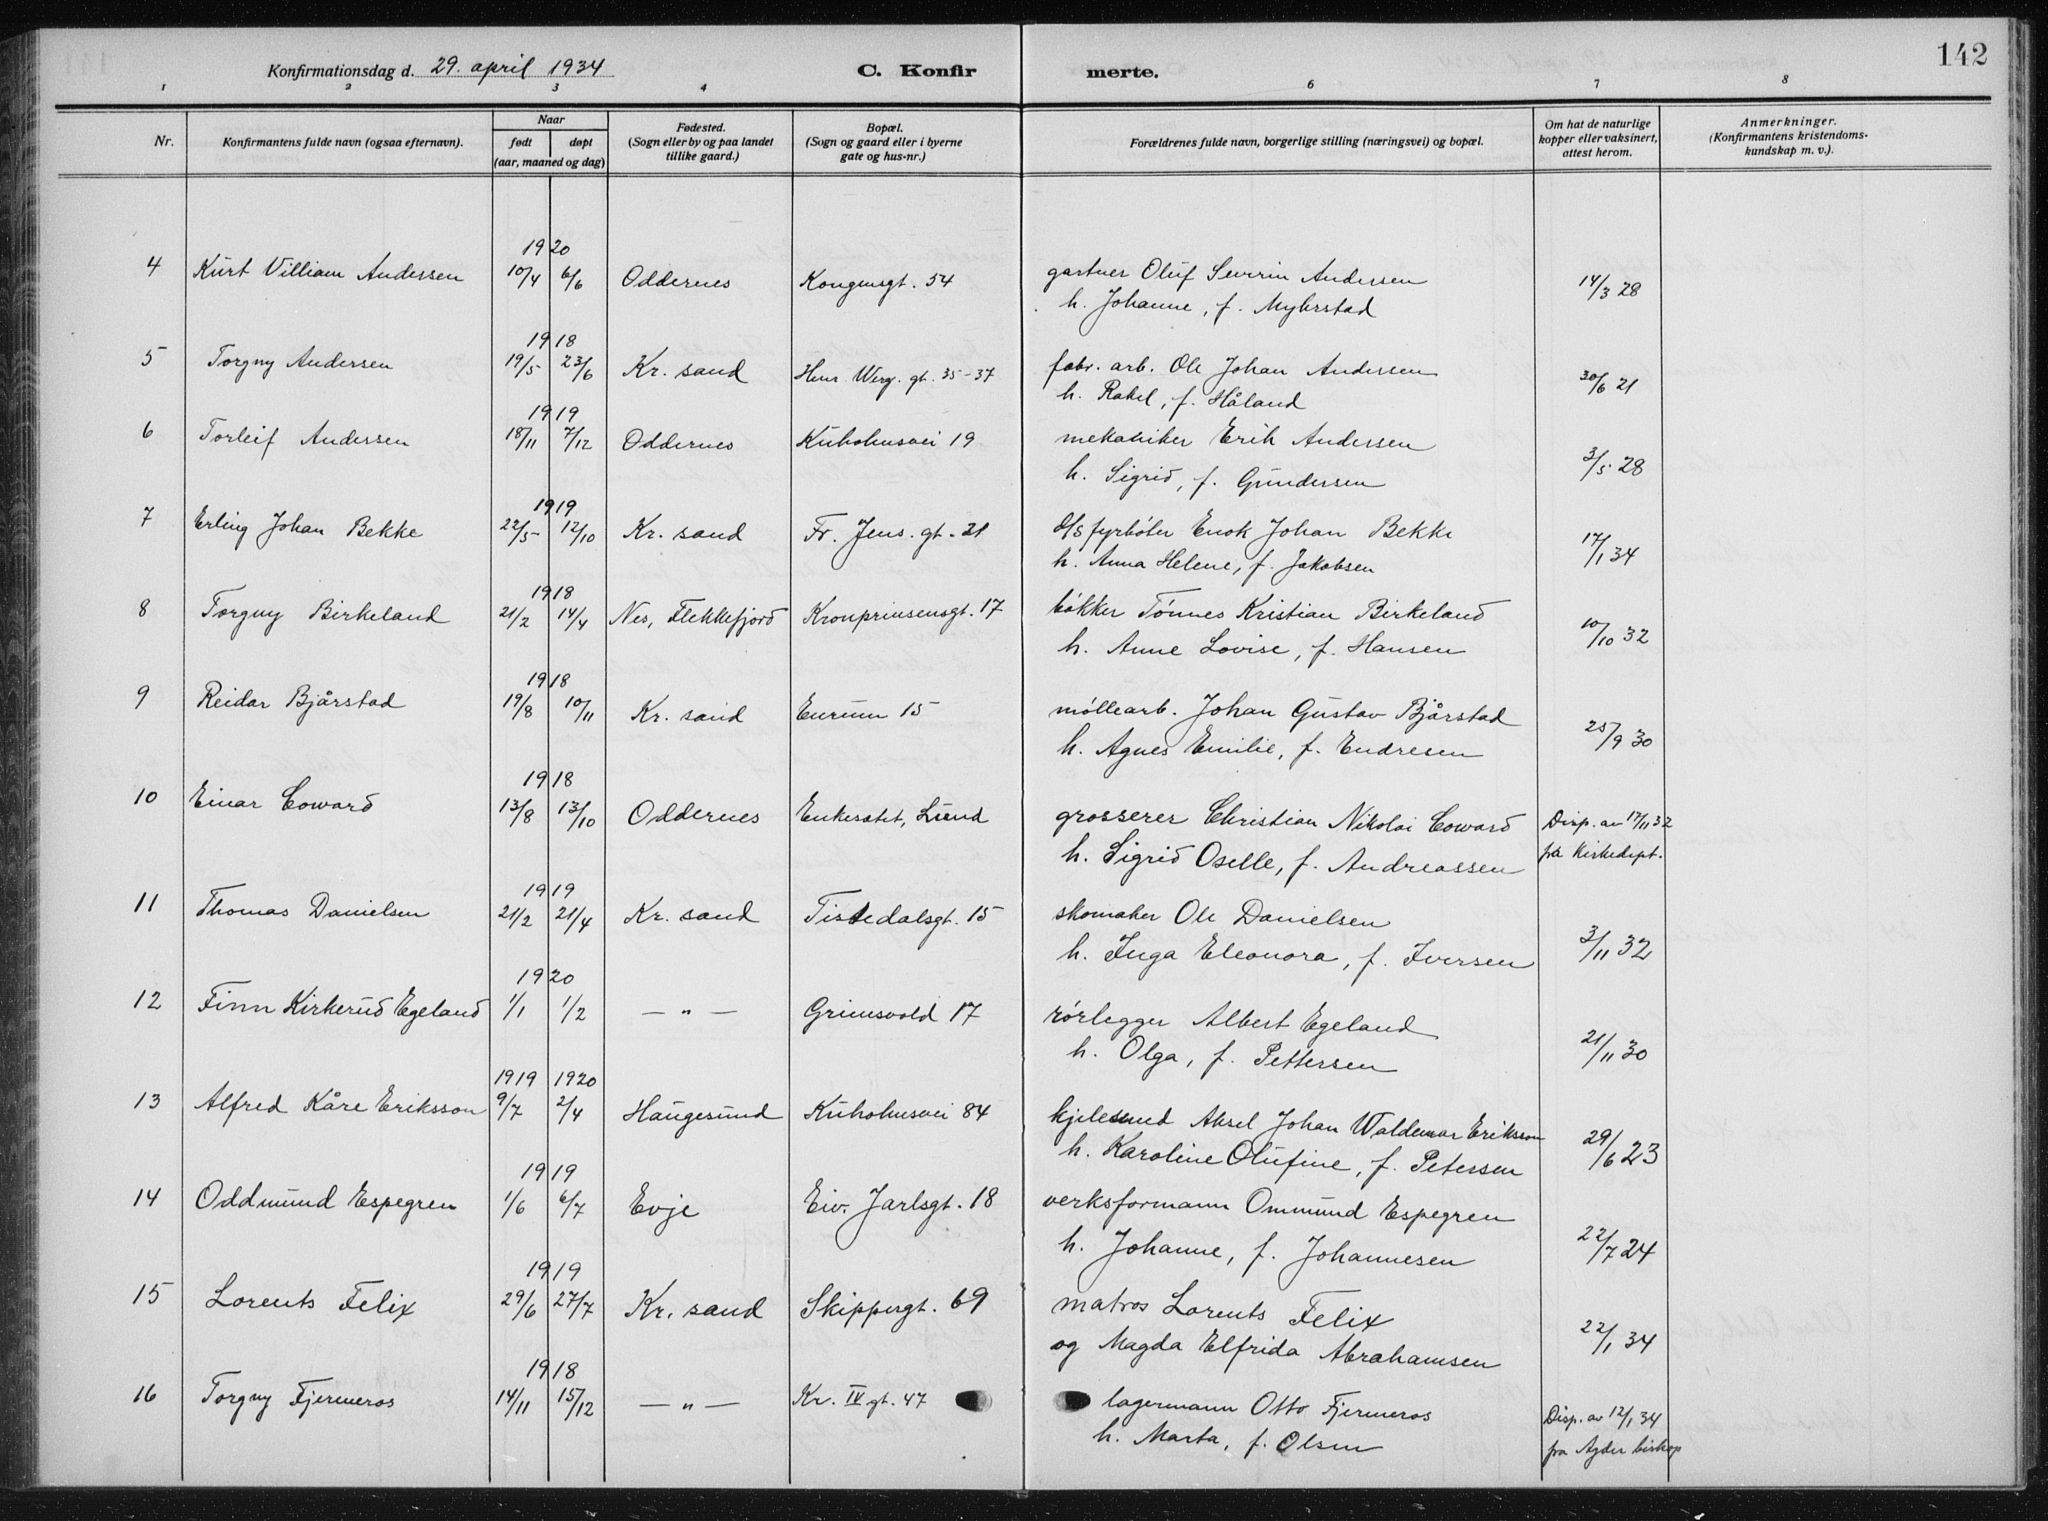 142
Konfirmationsdag d. 29. april 1934 C. Konfir merte.
1 2 3 4 6 7 8
Nr. Konfirmantens fulde navn (ogsaa efternavn). Naar født døpt (aar, maaned og dag) Fødested. (Sogn eller by og paa landet tillike gaard.) Bopæl. (Sogn og gaard eller i byerne gate og hus-nr.) Forældrenes fulde navn, borgerlige stilling (næringsvei) og bopæl. Om hat de naturlige kopper eller vaksinert, attest herom. Anmerkninger. (Konfirmantens kristendoms-kundskap m. v.).
1920
4 Kurt Villiam Andersen 10/4 6/6 Oddernes Kongensgt. 54 gartner Oluf Severin Andersen 14/3 28
h. Johanne, f. Myhrstad
1918
5 Torgny Andersen 19/5 23/6 Kr. sand Henr. Werg. gt. 35-37 fabr. arb. Ole Johan Andersen 30/6 21
h. Rakel, f. Håland
1919
6 Torleif Andersen 18/11 7/12 Oddernes Kuholmsvei 19 mekaniker Erik Andersen 3/5 28
h. Sigrid, f. Gundersen
1919
7 Erling Johan Bekke 22/5 12/10 Kr. sand Fr. Jens. gt. 21 d/s fyrbøter Enok Johan Bekke 17/1 34
h. Anna Helene, f. Jakobsen
1918
8 Torgny Birkeland 21/2 14/4 Nes, Flekkefjord Kronprinsensgt. 17 bøkker Tønnes Kristian Birkeland 10/10 32
h. Anne Lovise, f. Hansen
1918
9 Reidar Bjårstad 19/8 10/11 Kr. sand Eurum 15 møllearb. Johan Gustav Bjårstad 25/9 30
h. Agnes Emilie, f. Endresen
1918
10 Einar Coward 13/8 13/10 Oddernes Enkesætet, Lund grosserer Christian Nikolai Coward Disp. av 17/11 32
h. Sigrid Oselle, f. Andreassen fra Kirkedept.
1919
11 Thomas Danielsen 21/2 21/4 Kr. sand Tistedalsgt. 15 skomaker Ole Danielsen 3/11 32
h. Inga Eleonora, f. Iversen
1920
12 Finn Kirkerud Egeland 1/1 1/2 — „ — Grimsvold 17 rørlegger Albert Egeland 21/11 30
h. Olga, f. Pettersen
1919 1920
13 Alfred Kåre Eriksson 9/7 2/4 Haugesund Kuholmsvei 84 kjelesmed Aksel Johan Waldemar Eriksson 29/6 23
h. Karoline Olufine, f. Petersen
1919
14 Oddmund Espegren 1/6 6/7 Evje Eiv. Jarlsgt. 18 verksformann Ommund Espegren 22/7 24
h. Johanne, f. Johannesen
1919
15 Lorents Felix 29/6 27/7 Kr. sand Skippergt. 69 matros Lorents Felix 22/1 34
og Magda Elfrida Abrahamsen
1918
16 Torgny Fjermeros 14/11 15/12 — „ — Kr. IV gt. 47 lagermann Otto Fjermeros Disp. av 12/1 34
h. Marta, f. Olsen fra Agder biskop